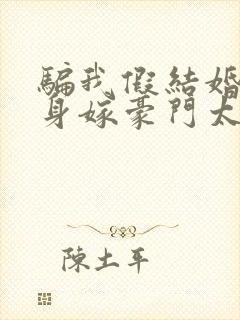 騙我假結婚
身嫁豪門太
陳土平